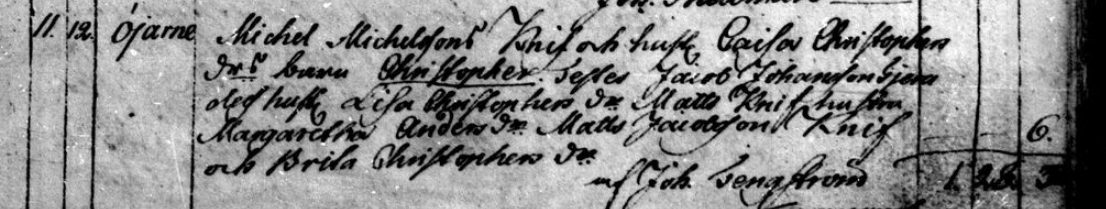 11. 12. Öjarne Michel Michelsons Knif och hust. Caisa Christophers
drs barn Christopher. Testes Jacob Johanson Gjers
och hust. Lisa Christophers dr. Matts Knif hustru
Margaretha Anders dr. Matts Jacobson Knif 6.
och Brita Christophers dr.
af Joh. Tengström 1.